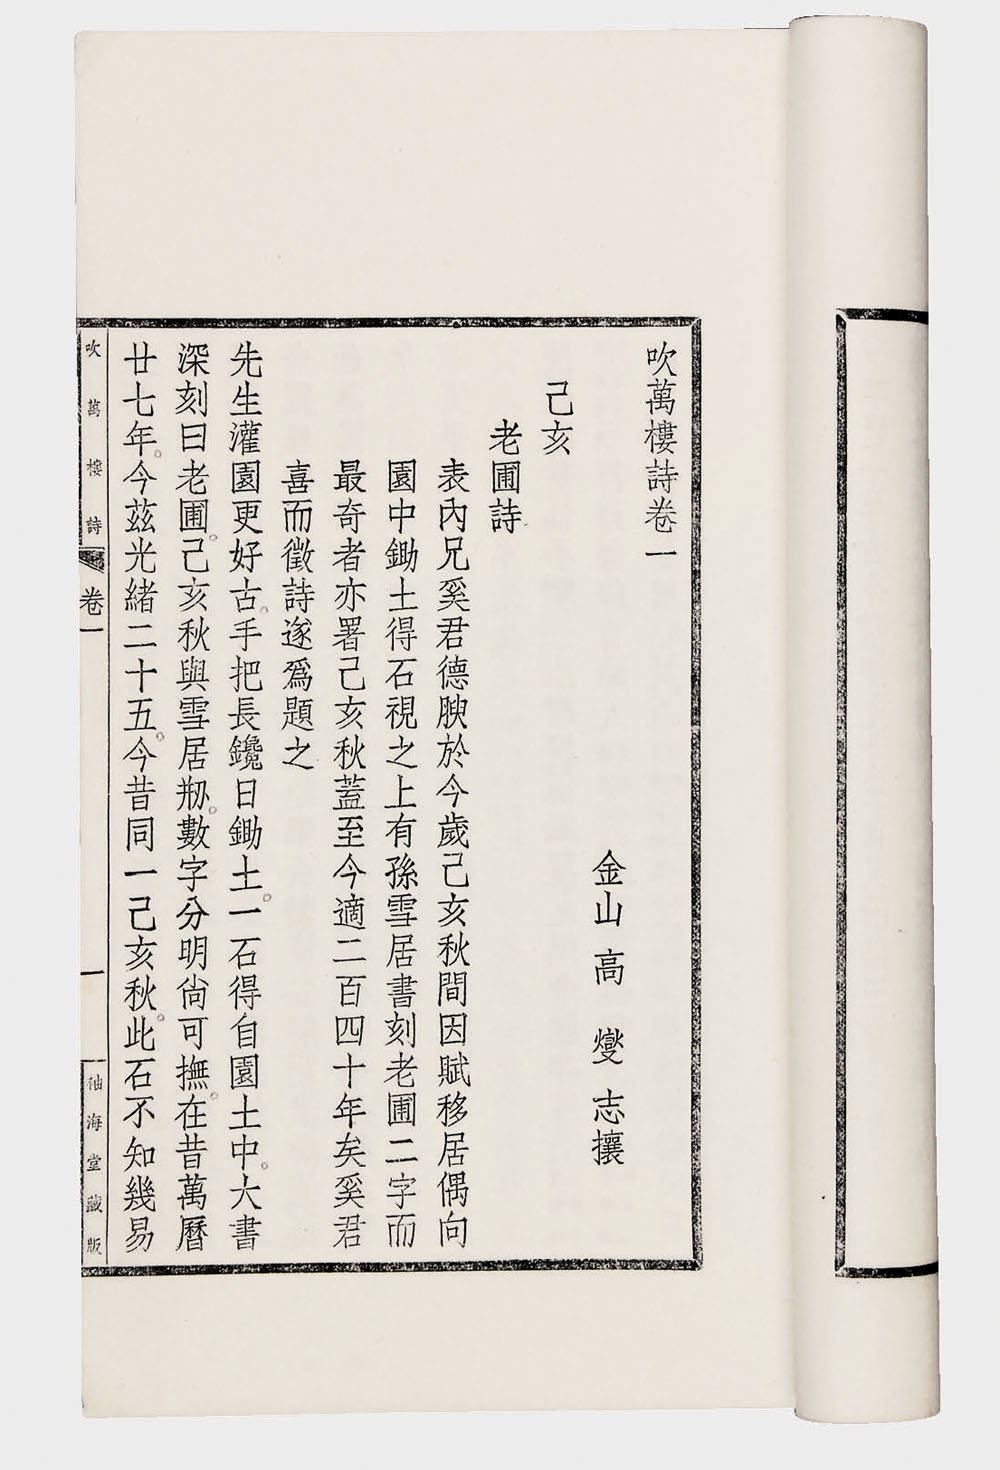 吹萬樓詩卷一
金山高燮志攘
己亥
老圃詩
表內兄奚君德腴於今歲己亥秋間因賦移居偶向
園中鋤土得石視之上有孫雪居書刻老圃二字而
最奇者亦署己亥秋蓋至今適二百四十年矣奚君
喜而徵詩遂爲題之
先生灌園更好古。手把長鑱日鋤土。一石得自園土中。大書
深刻曰老圃。己亥秋與雪居刱。數字分明尙可撫。在昔萬曆
廿七年。今茲光緒二十五。今昔同一己亥秋。此石不知幾易
吹萬樓詩
卷一
一
袖海堂藏版